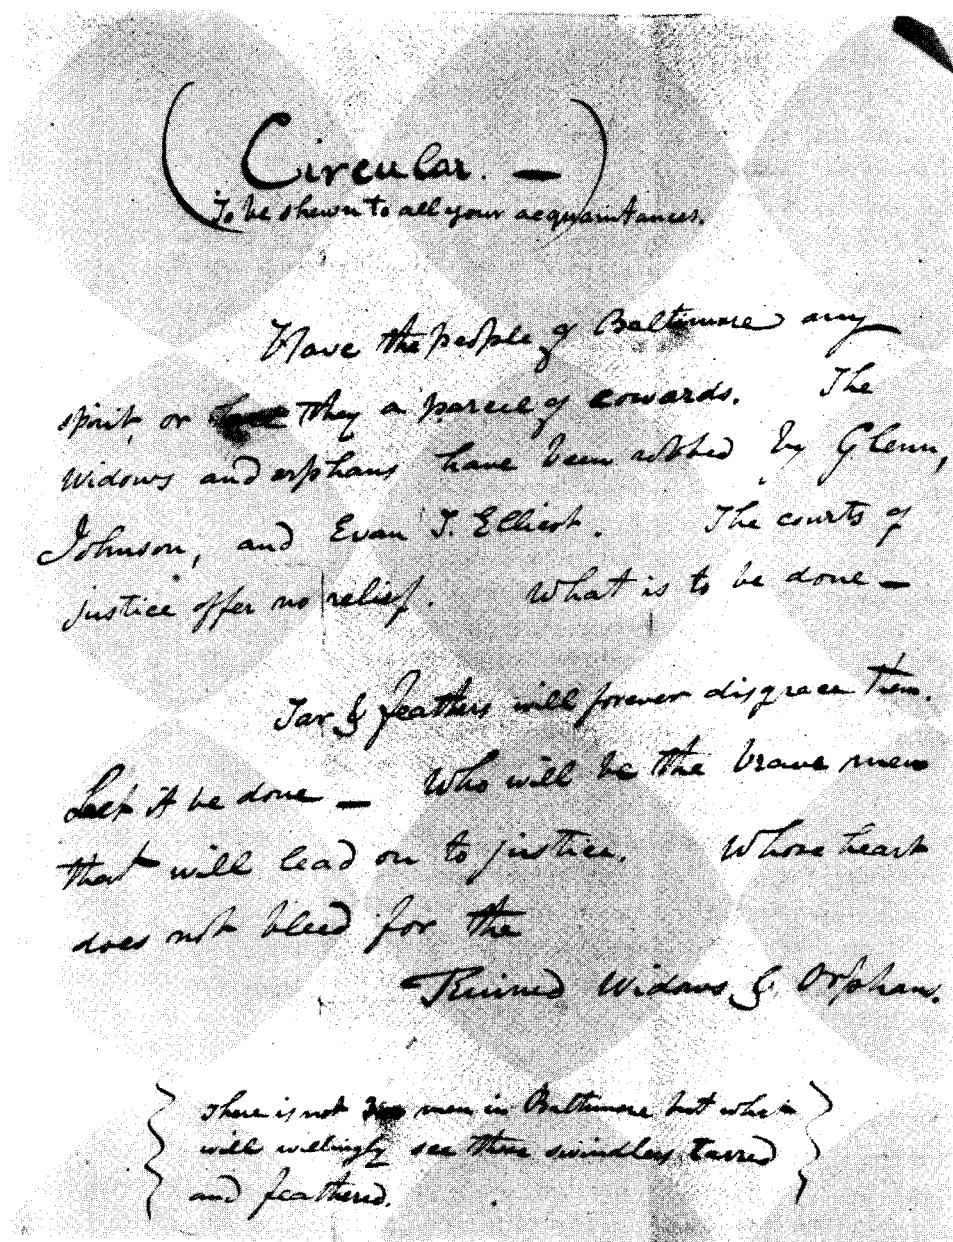 (Circular. —)
To be shewn to all your acquaintances.
Have the people of Baltimore any
spirit, or they a parcel of cowards. The
Widows and orphans have been robbed by Glenn,
Johnson, and Evan T. Elliott. The courts of
justice offer no relief. What is to be done —
Tar & feathers will forever disgrace them.
Let it be done — Who will be the brave men
that will lead on to justice. Whose heart
does not bleed for the
Ruined Widows & Orphans.
There is not men in Baltimore but what
will willingly see these swindlers tarred
and feathered.